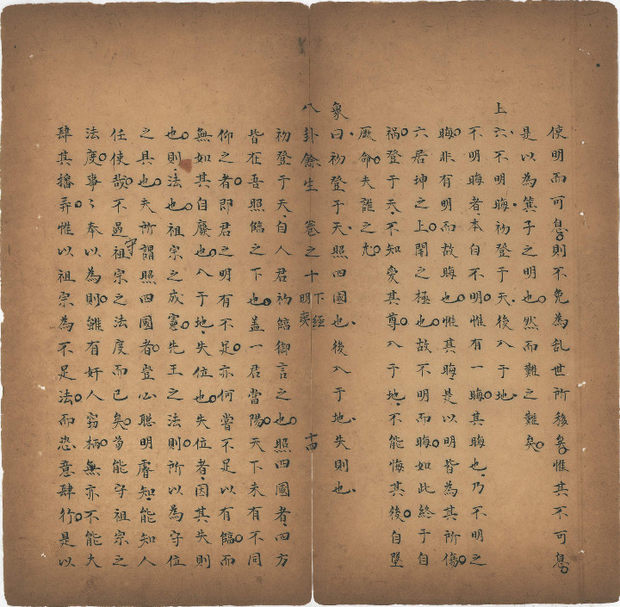 使明而可息則不免為亂世所移矣惟其不可息
是以為箕子之明也然而難之難矣
上六不明晦初登于天後入于地
不明晦者本自不明惟有一晦其晦也乃不明之
晦非有明而故晦也惟其晦是以明皆為其所傷
六居坤之上闇之極也故不明而晦如此終于自
禍登于天不知愛其尊入于地不能悔其後自墜
厥命夫誰之尤
象曰初登于天照四國也後入于地失則也
八卦餘生 卷之十 下經 明夷 十四
初登于天自人君初臨御言之也照四國者四方
皆在吾照臨之下也蓋一君當陽天下未有不同
仰之者即君之明有不足亦何嘗不足以有臨而
無如其自廢也入于地失位也失位者因其失則
也則法也祖宗之成憲先王之法則所以為守位
之具也夫所謂照四國者豈必聰明睿知能知人
任使哉不過守祖宗之法度而已矣苟能守祖宗之
法度事事奉以為則雖有奸人竊柄無亦不能大
肆其播弄惟以祖宗為不足法而恣意肆行是以